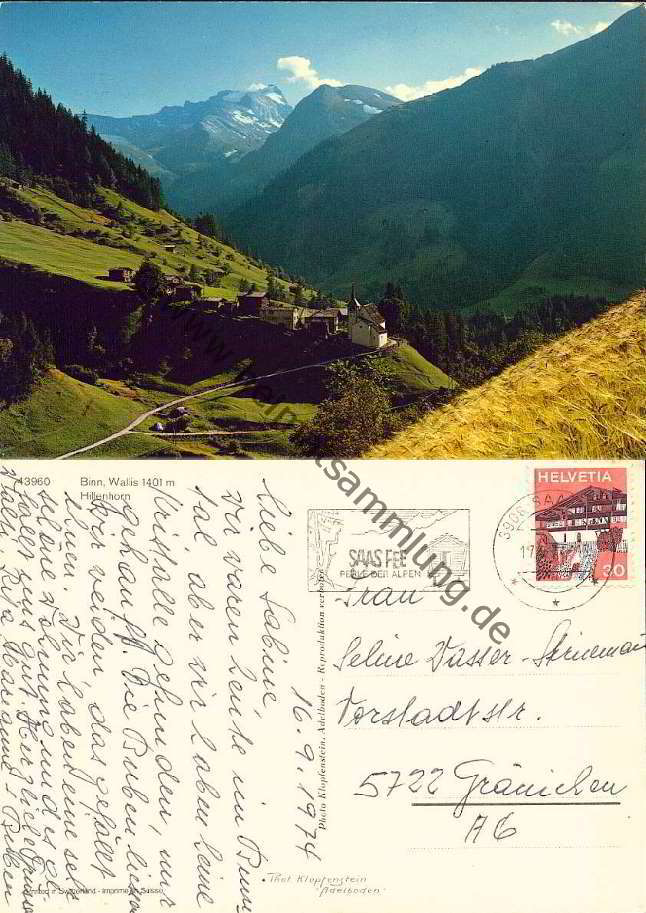 43960 Binn, Wallis 1401 m
Hillenhorn
16.9.1974
Liebe Sabine,
Wir waren heute in Binn
tal aber wir haben keine
Kristalle gefunden, nur
gekauft. Die Buben
Wir beiden das gefällt
ihnen. Wir haben eine sehr
schöne Wohnung und es
gefällt uns gut. Herzliche Grüsse
Marianne + Buben
Printed in Switzerland - Imprimé en Suisse
Photo Klopfenstein, Adelboden - Reproduktion verboten
SAAS FEE
PERLE DER ALPEN
3906 SAAS
HELVETIA
30
Frau
Seline Vasser-
Vorstadtstr.
5722 Gränichen
AG
Phot. Klopfenstein
Adelboden
sammlung.de